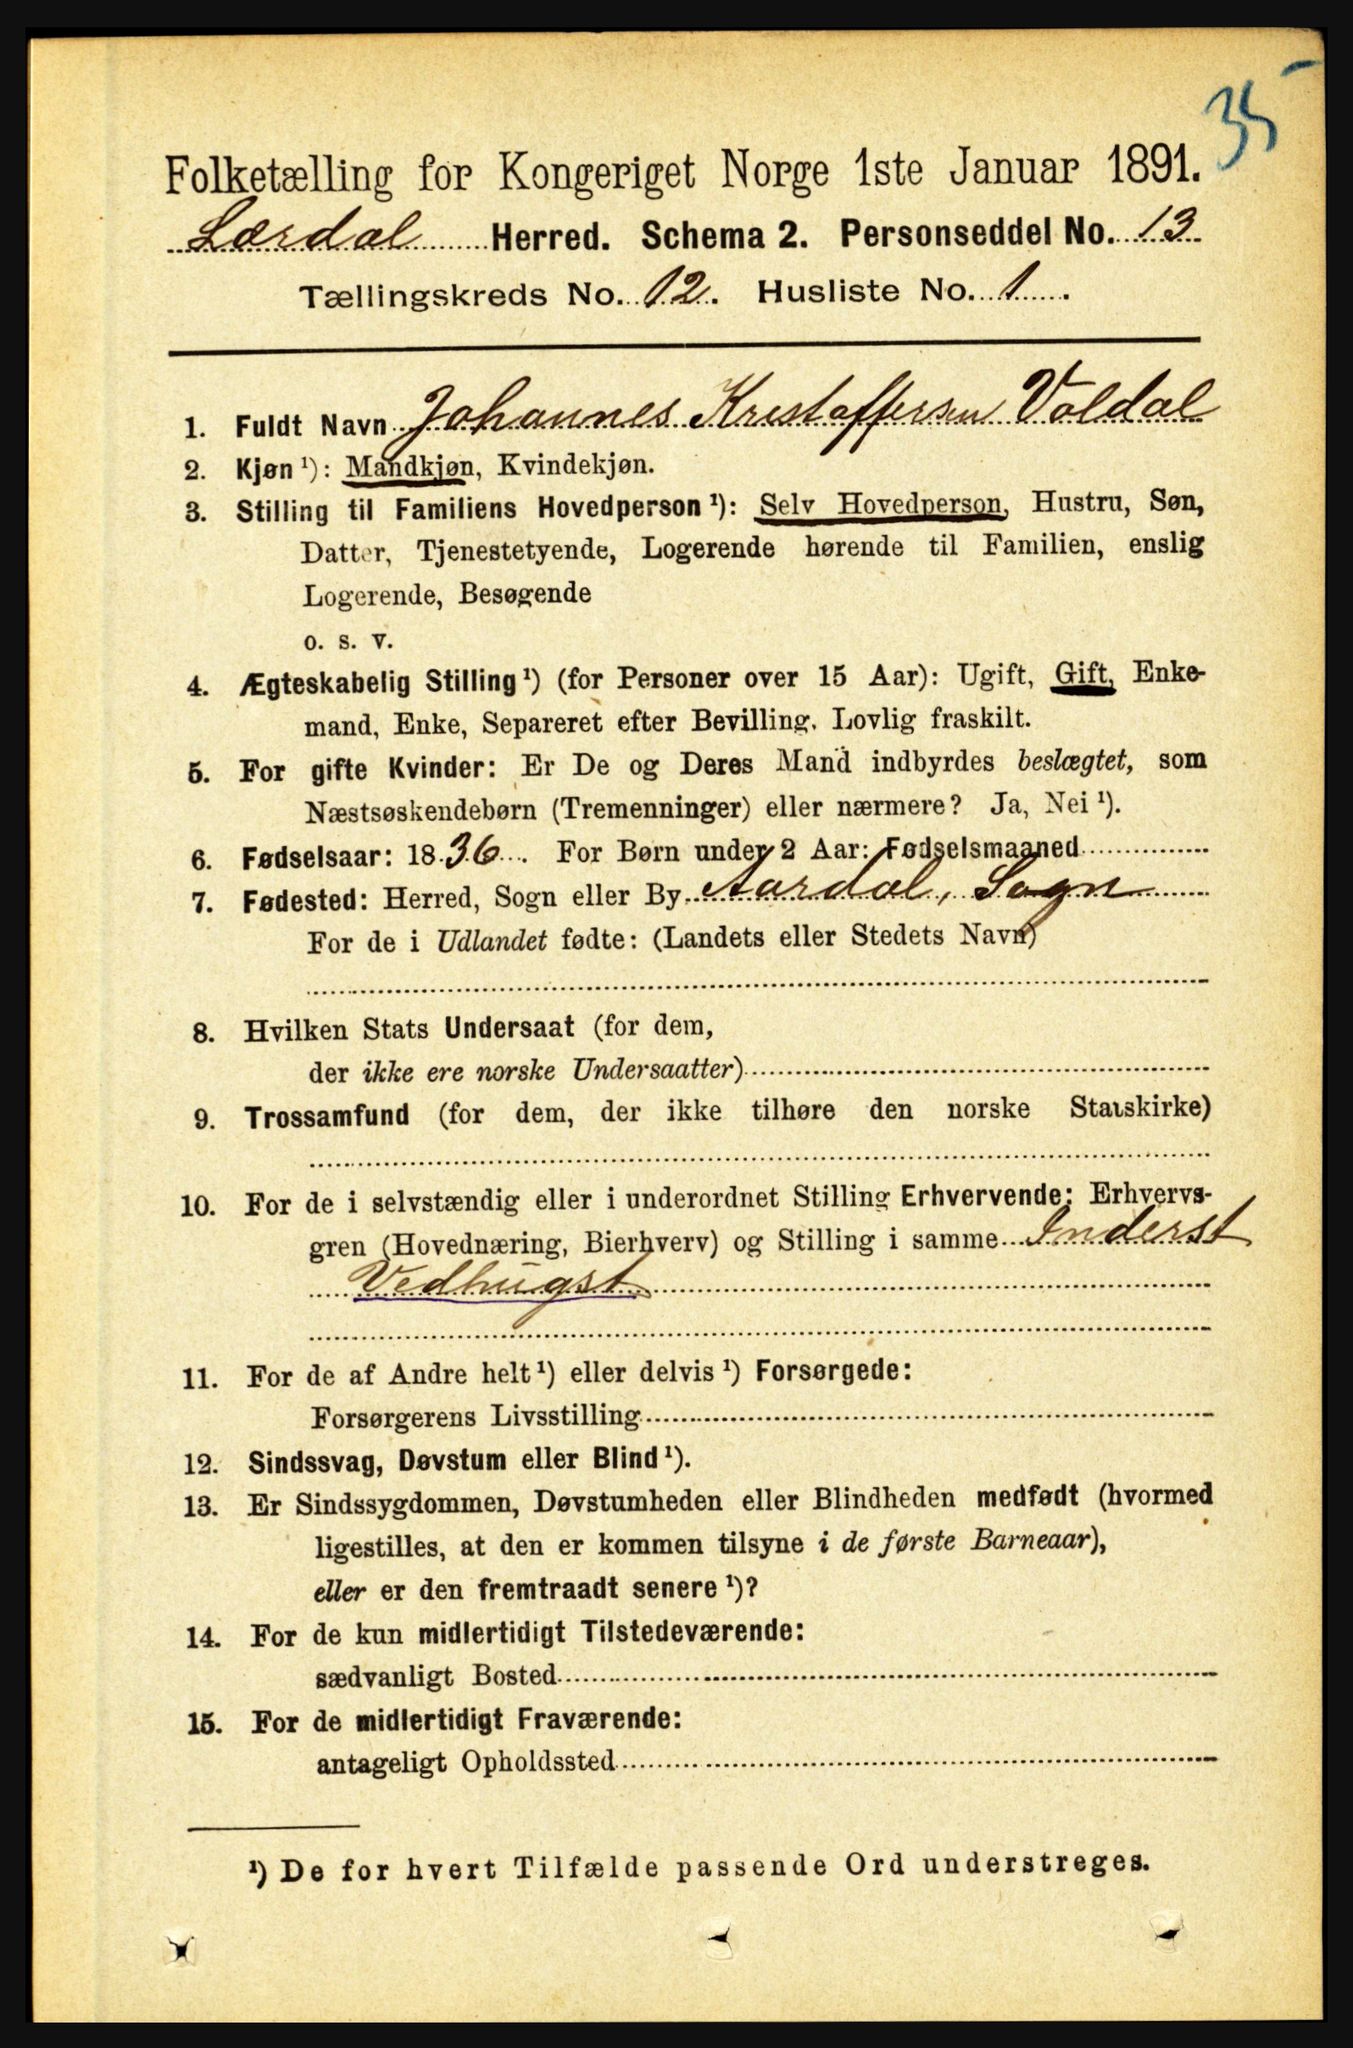 35
Folketælling for Kongeriget Norge 1ste Januar 1891.
Lærdal Herred. Schema 2. Personseddel No. 13
Tællingskreds No. 12. Husliste No. 1.
1. Fuldt Navn Johannes Kristoffersen Voldal
2. Kjøn ¹): Mandkjøn, Kvindekjøn.
3. Stilling til Familiens Hovedperson ¹): Selv Hovedperson, Hustru, Søn,
Datter, Tjenestetyende, Logerende hørende til Familien, enslig
Logerende, Besøgende
o. s. v.
4. Ægteskabelig Stilling ¹) (for Personer over 15 Aar): Ugift, Gift, Enke-
mand, Enke, Separeret efter Bevilling. Lovlig fraskilt.
5. For gifte Kvinder: Er De og Deres Mand indbyrdes beslægtet, som
Næstsøskendebørn (Tremenninger) eller nærmere? Ja, Nei ¹).
6. Fødselsaar: 1836. For Børn under 2 Aar: Fødselsmaaned
7. Fødested: Herred, Sogn eller By Aardal, Sogn
For de i Udlandet fødte: (Landets eller Stedets Navn)
8. Hvilken Stats Undersaat (for dem,
der ikke ere norske Undersaatter)
9. Trossamfund (for dem, der ikke tilhøre den norske Statskirke)
10. For de i selvstændig eller i underordnet Stilling Erhvervende: Erhvervs-
gren (Hovednæring, Bierhverv) og Stilling i samme Inderst
Vedhugst
11. For de af Andre helt ¹) eller delvis ¹) Forsørgede:
Forsørgerens Livsstilling
12. Sindssvag, Døvstum eller Blind ¹).
13. Er Sindssygdommen, Døvstumheden eller Blindheden medfødt (hvormed
ligestilles, at den er kommen tilsyne i de første Barneaar),
eller er den fremtraadt senere ¹)?
14. For de kun midlertidigt Tilstedeværende:
sædvanligt Bosted
15. For de midlertidigt Fraværende:
antageligt Opholdssted
¹) De for hvert Tilfælde passende Ord understreges.